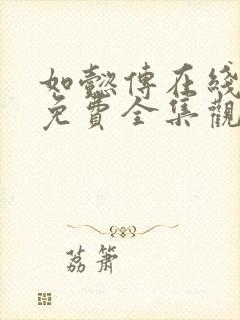 如懿傳在綫
免費全集觀
荔簫